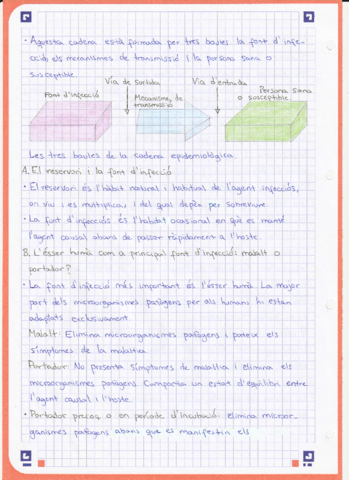 · Aquesta cadena està formada per tres baules la font d'infe-
cció, els mecanismes de transmissió i la persona sana o
susceptible.
Via de sortida
Via d'entrada
Font d'infecció
Mecanisme de
transmissió
Persona sana
o susceptible.
Les tres baules de la cadena epidemiològica
A. El reservori i la font d'infecció
· El reservori és l'hàbitat natural i habitual de l'agent infecciós,
on viu i es multiplica, i del qual depèn per sobreviure.
· La font d'infecció és l'hàbitat ocasional en què es manté
l'agent causal abans de passar ràpidament a l'hoste.
B. L'ésser humà com a principal font d'infecció: malalt o
portador?
· La font d'infecció més important és l'ésser humà. La major
part dels microorganismes patògens per als humans hi estan
adaptats exclusivament
Malalt: Elimina microorganismes patògens i pateix els
símptomes de la malaltia.
Portador: No presenta símptomes de malaltia i elimina els
microorganismes patògens. Comporta un estat d'equilibri entre
l'agent causal i l'hoste.
· Portador precoç o en període d'incubació: elimina microor-
ganismes patògens abans que es manifestin els